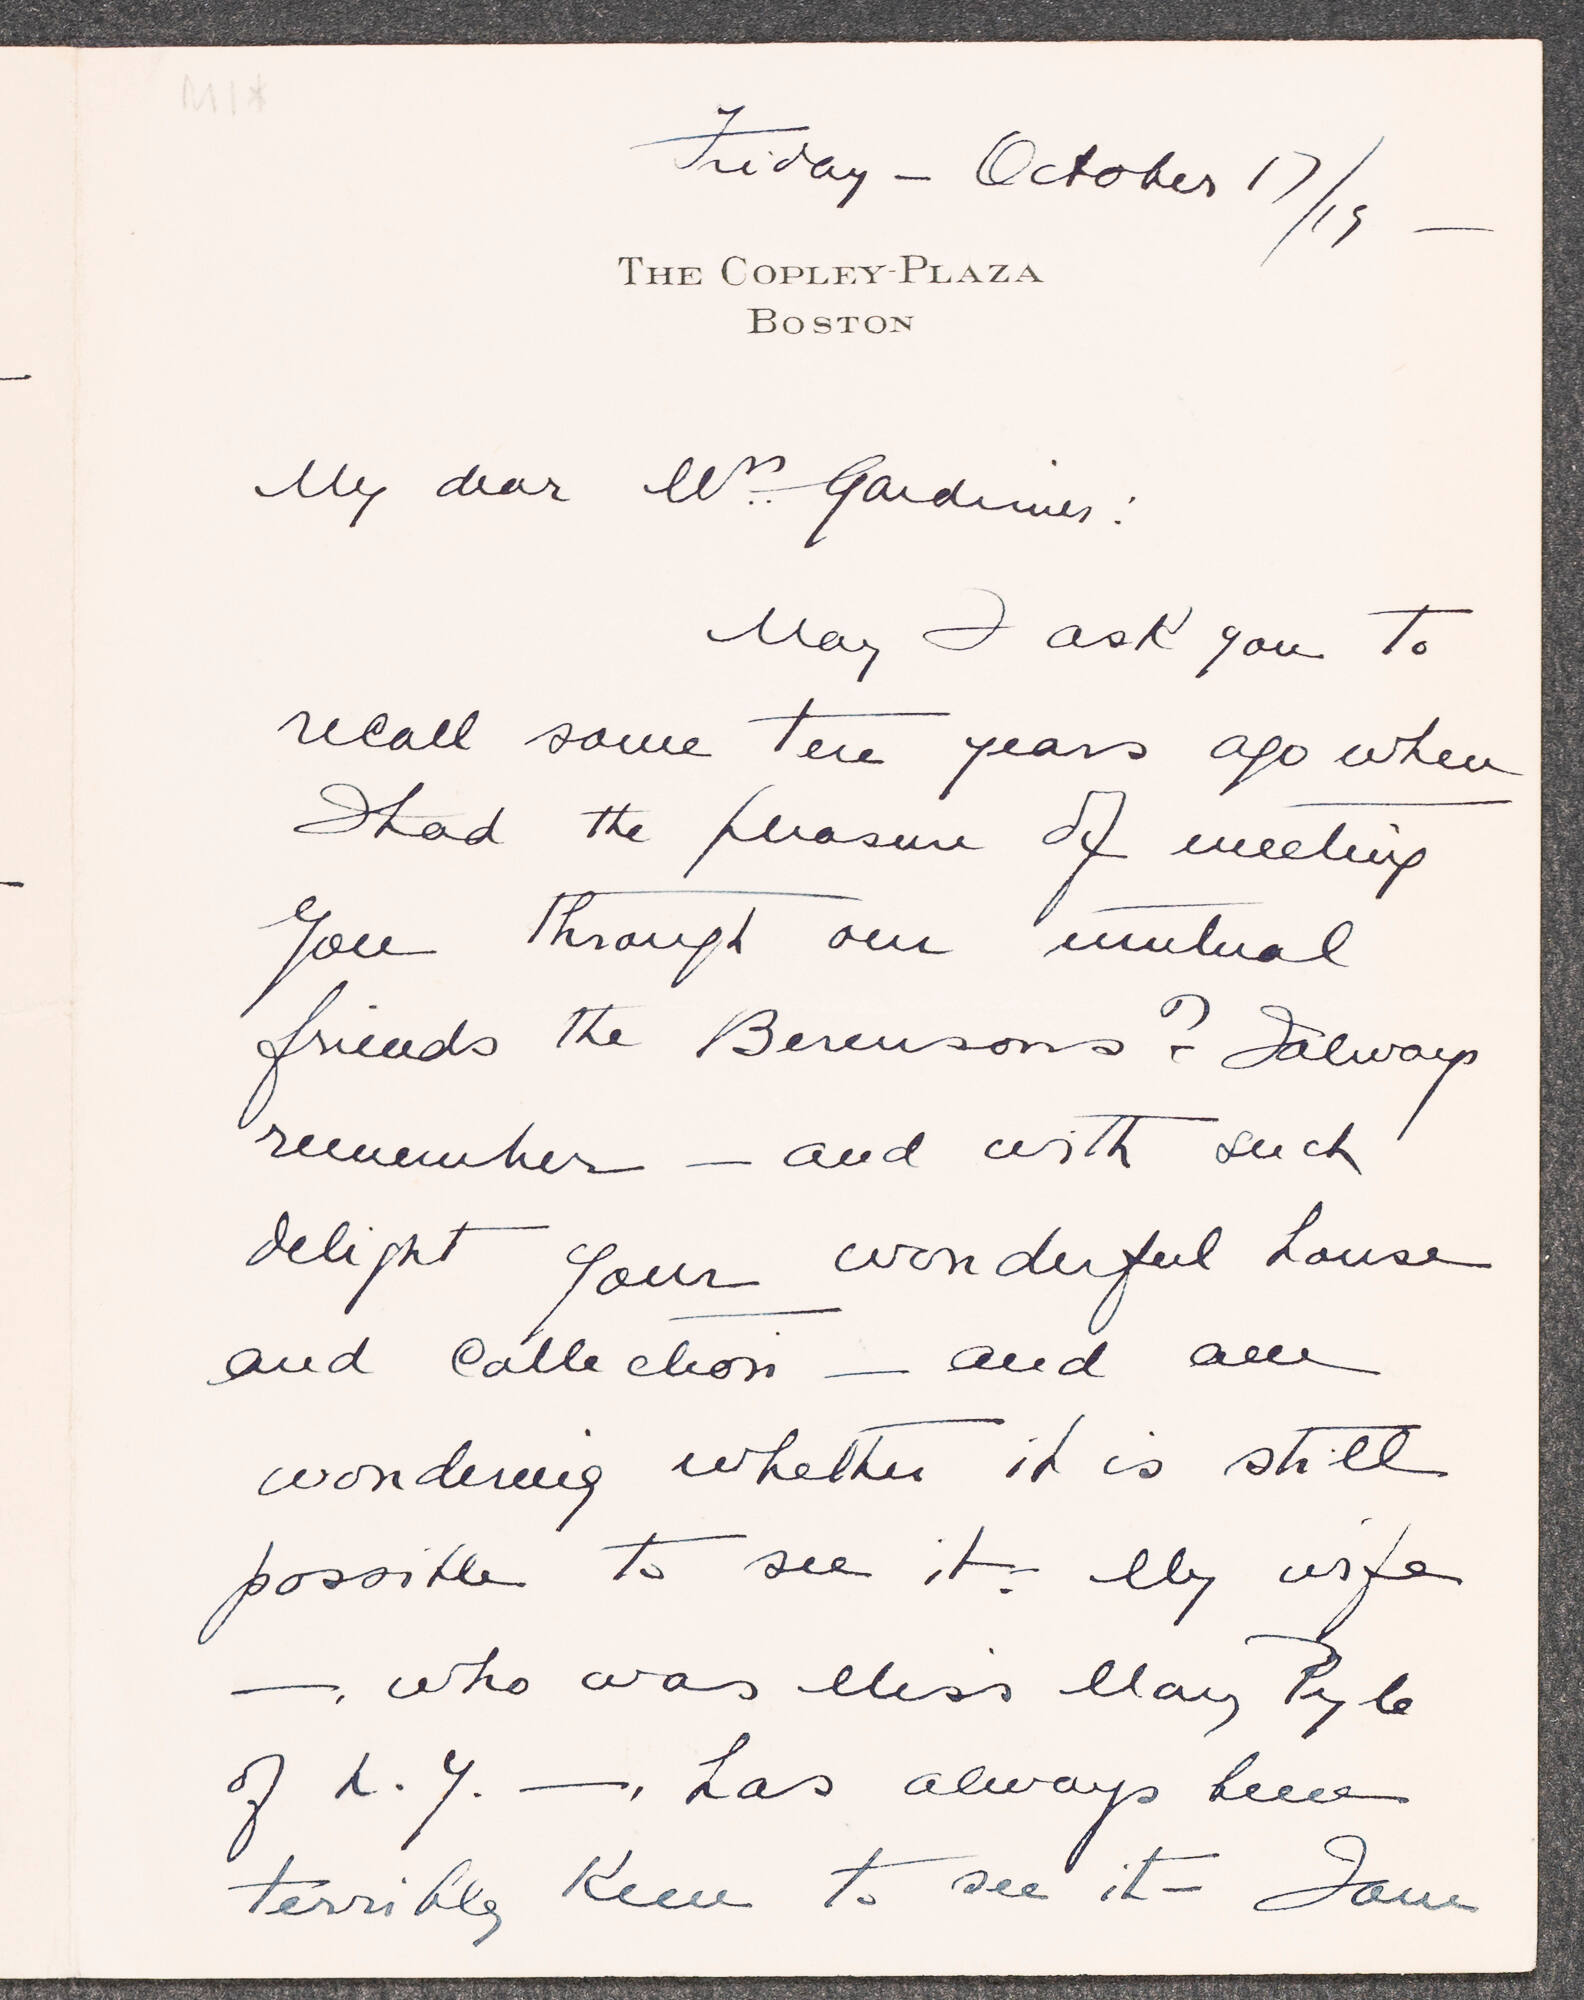 M1*
Friday – October 17/19 –
THE COPLEY-PLAZA
BOSTON
My dear Mrs. Gardiner:
May I ask you to
recall some ten years ago when
I had the pleasure of meeting
you through our mutual
friends the Berensons? I always
remember – and with such
delight your wonderful house
and collection – and am
wondering whether it is still
possible to see it. My wife
—, who was Miss Mary Pyle
of N.Y. —, has always been
terribly keen to see it – I am